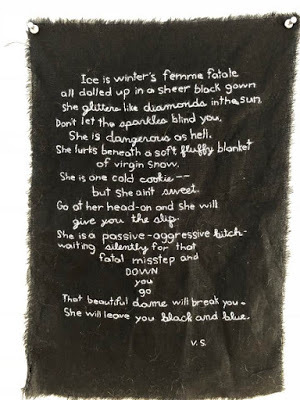 Ice is winter's femme fatale
all dolled up in a sheer black gown
She glitters like diamonds in the sun.
Don't let the sparkles blind you,
She is dangerous as hell.
She lurks beneath a soft fluffy blanket
of virgin snow.
She is one cold cookie --
but she aint sweet.
Go at her head-on and she will
give you the slip.
She is a passive-aggressive bitch-
waiting silently for that
fatal misstep and
DOWN
you
go
That beautiful dame will break you.
She will leave you black and blue.
V.S.